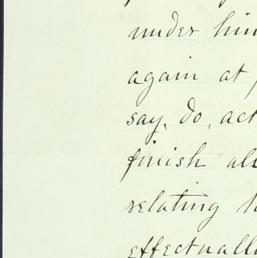 under him
again at
say, do, act
finish all
relating to
effectually